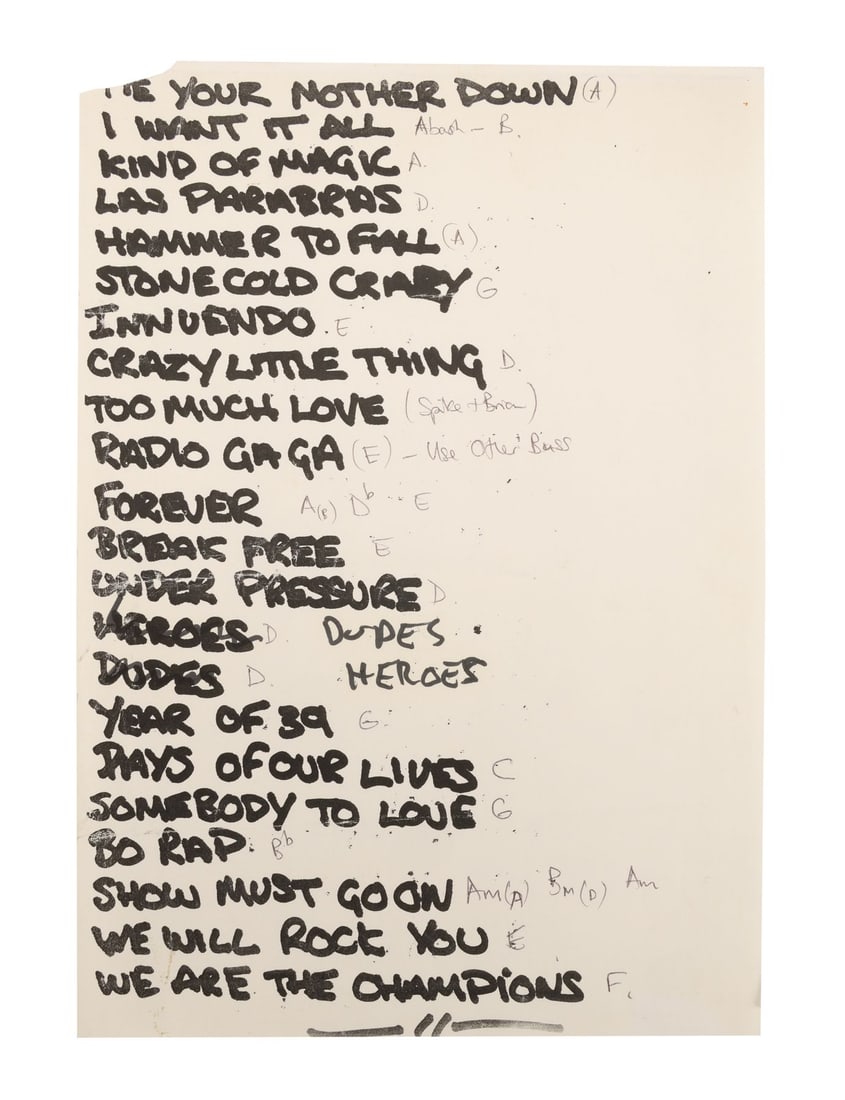 TIE YOUR MOTHER DOWN (A)
I WANT IT ALL Abash - B.
KIND OF MAGIC A.
LAS PARABRAS D.
HAMMER TO FALL (A)
STONE COLD CRAZY G
INNUENDO. E
CRAZY LITTLE THING D.
TOO MUCH LOVE (Spike + Brian)
RADIO GA GA (E) - Use Other Bass
FOREVER A(B) Db E
BREAK FREE E
UNDER PRESSURE D
HEROES D DUDES.
DUDES D. HEROES
YEAR OF 39 G
DAYS OF OUR LIVES C
SOMEBODY TO LOVE G
BO RAP Bb
SHOW MUST GO ON Am(A) Bm(D) Am
WE WILL ROCK YOU E
WE ARE THE CHAMPIONS F.